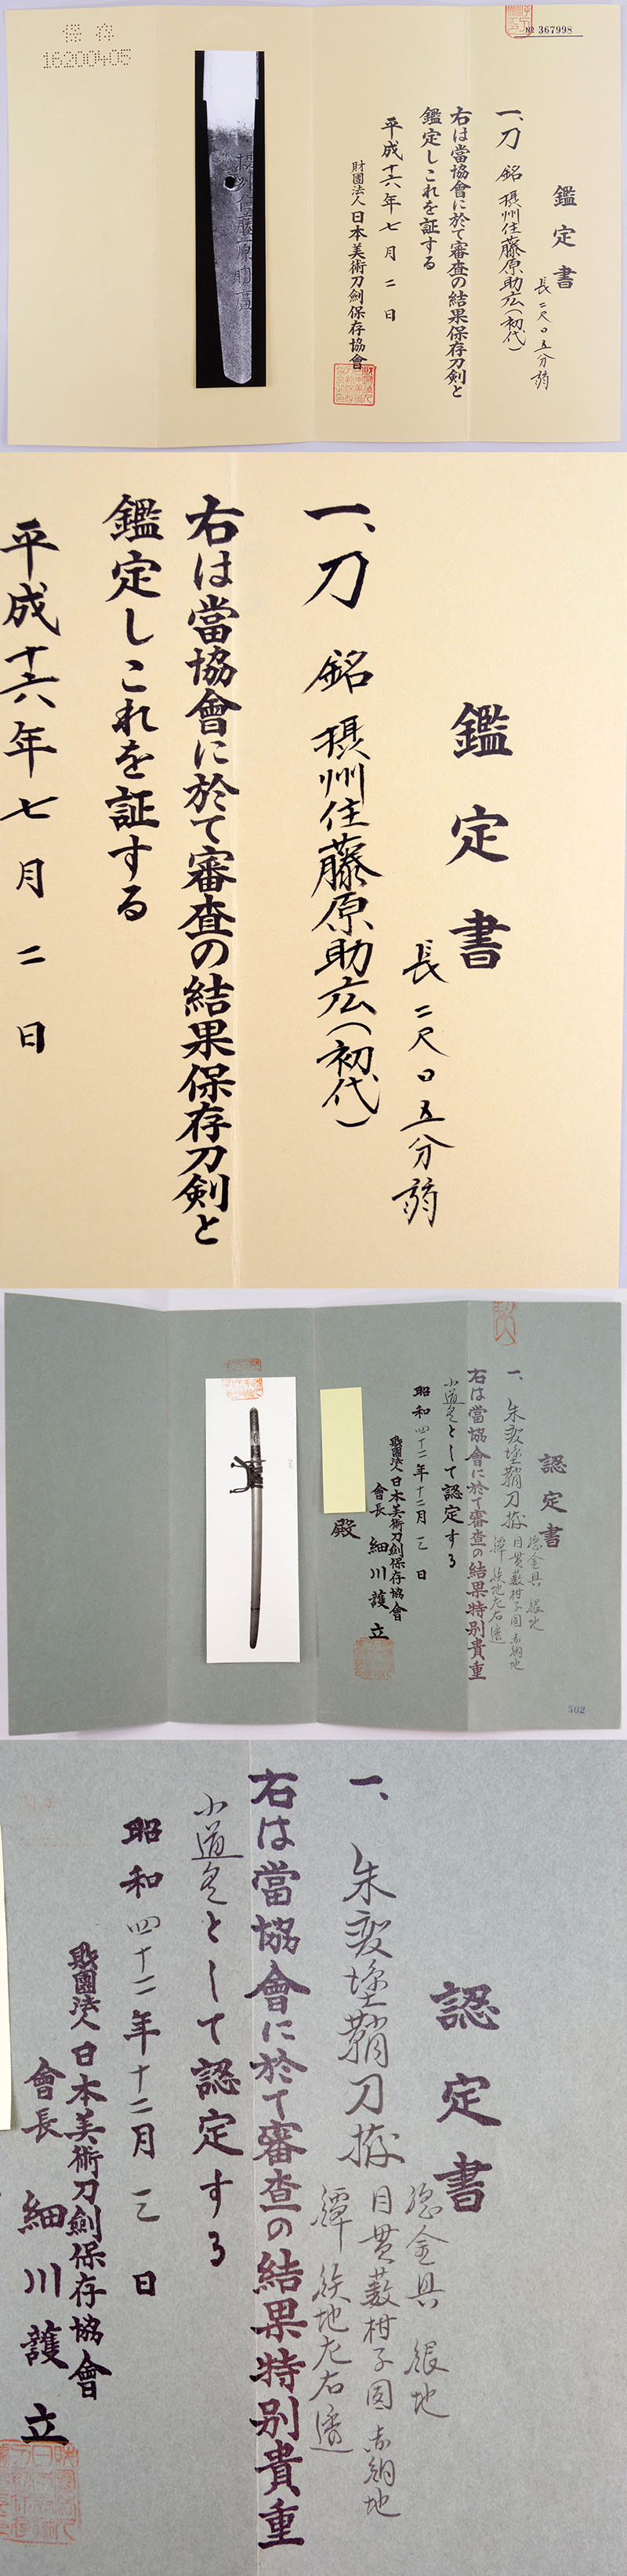 保存
16200405
№ 367998
鑑定書
長二尺〇五分弱
一、刀 銘 摂州住藤原助広(初代)
右は當協會に於て審査の結果保存刀剣と
鑑定しこれを証する
平成十六年七月二日
財團法人日本美術刀劍保存協會
鑑定書
長二尺〇五分弱
一、刀 銘 摂州住藤原助広(初代)
右は當協會に於て審査の結果保存刀剣と
鑑定しこれを証する
平成十六年七月二日
認定書
一、朱変塗鞘刀拵
総金具 銀地
目貫藪柑子図赤銅地
鐔 鉄地左右透
右は當協會に於て審査の結果特別貴重
小道具として認定する
昭和四十二年十二月三日
財團法人日本美術刀劍保存協會
會長 細川護立
殿
502
認定書
総金具 銀地
一、朱変塗鞘刀拵
目貫藪柑子図赤銅地
鐔 鉄地左右透
右は當協會に於て審査の結果特別貴重
小道具として認定する
昭和四十二年十二月三日
財團法人日本美術刀劍保存協會
會長 細川護立